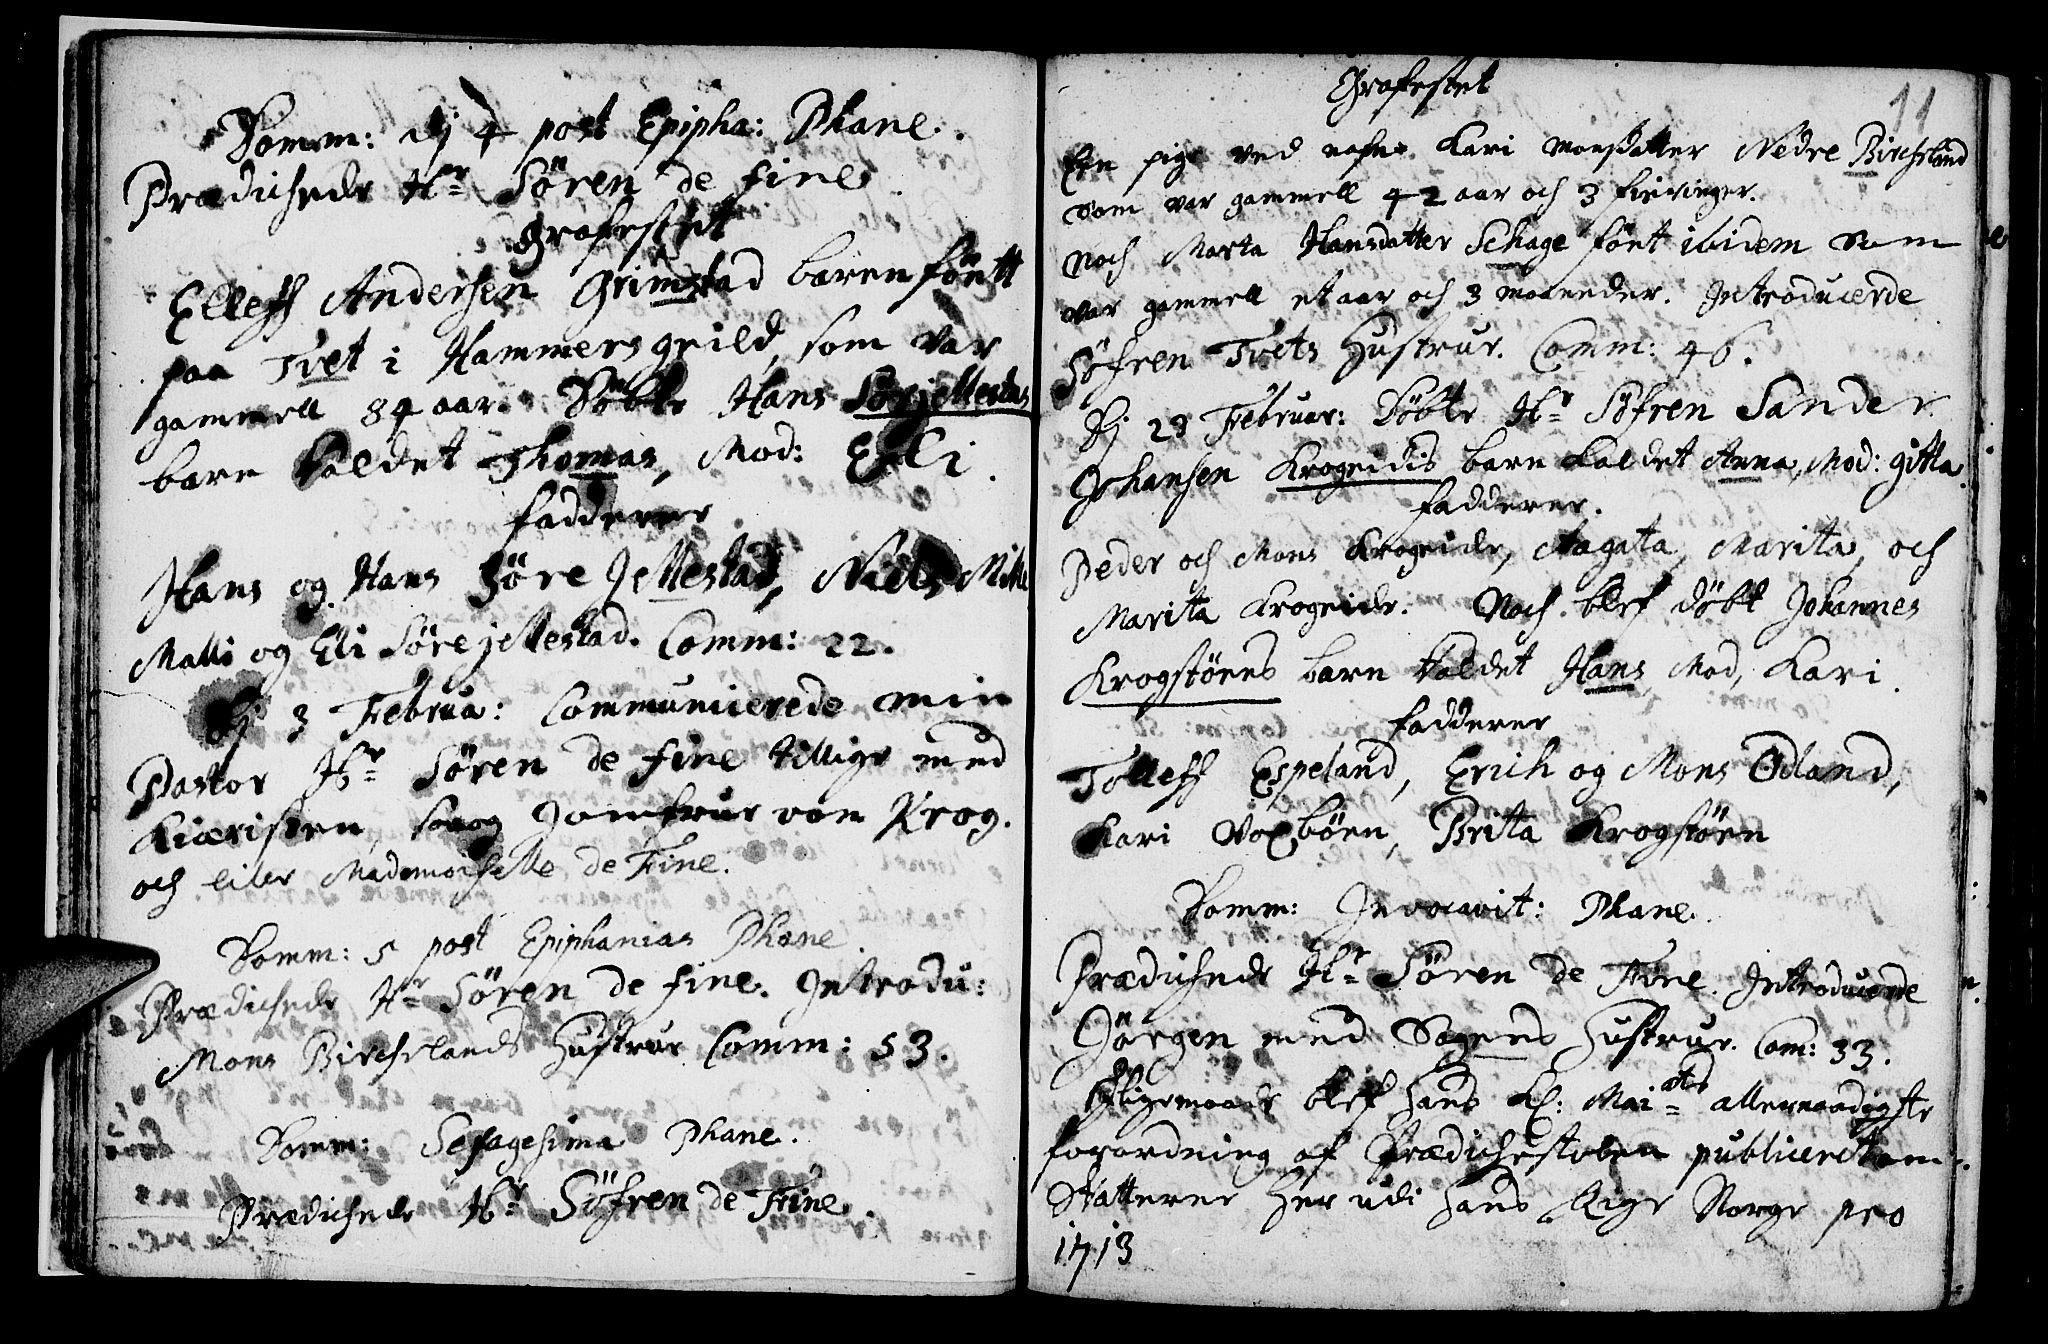 Domm: dj 4 post Epipha: Phane.
Prædichede Hr Søren de fine.
Grafestet
Elleff Andersen Grimstad baren föntt
paa Tvet i Hammersgrild, som var
gammell 84 aar. Döbte Hans Sörjellestas
barn kaldet Thomas, Mod: Elli.
fadderer
Hans og Hans Söre Jellestad, Niels Mitte
Malli og Eli Sörejellestad. Comm: 22.
Dj 3 Februa: Communicerede min
Pastor Hr Søren de fine tillige med
Kiæristen, saaog Jomfrue von Krog.
och liller Mademoiselle de Fine.
Domm: 5 post Epiphanias Phane.
Prædichede Hr Søren de fine. Introdu:
Mons Bircheland Hustrue Comm: 53.
Domm: Sexagesima Phane.
Prædichede Hr Söfren de Fine.
11
Grafestet
Een pige ved nafne Kari Monsdatter Nedre Bircheland
som var gammell 42 aar och 3 fieringer.
Noch Marta Hansdatter Schage fönt ibidem som
var gammell et aar och 3 maaneder. Introducerde
Söfren Tvets Hustrue. Comm: 46.
Dj 23 Februar: Döbte Hr Söfren Sander
Johansen Krogeidis barn kaldet Anna, Mod: gitla.
fadderer.
Peder och Mons Krogeide, Aagata, Marita, och
Marita Krogeide. Noch blef döbt Johannes
Krogstöens barn kaldet Hans, Mod, Kari.
fadderer
Tolleff Espeland, Erich og Mons Ödland,
Kari Voxböen, Brita Krogstöen
Domm: Invocavit: Phane.
Prædichede Hr Søren de Fine. Introducerde
Jörgen med Sogens Hustrue. Com: 33.
Ifligemaade blef Hans Kl: Maiats allernaadigste
forordning af Prædichestolen publiceret om
Skatterne her udi Hans Rige Norge pro
1713